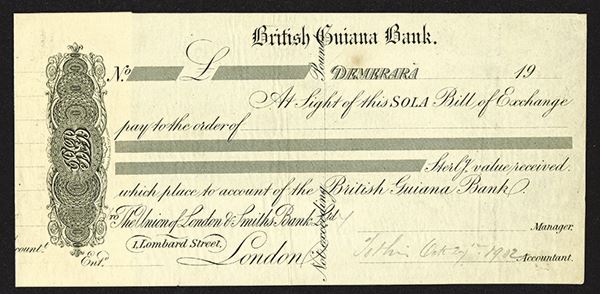 British Guiana Bank.
No £ DEMERARA 19
At Sight of this SOLA Bill of Exchange
pay to the order of
Sterlg. value received.
which place to account of the British Guiana Bank.
TO The Union of London & Smiths Bank Ld
1, Lombard Street,
London.
Manager.
Oct 29th 1902 Accountant.
Entd.
ccount.
Not exceeding
Pounds